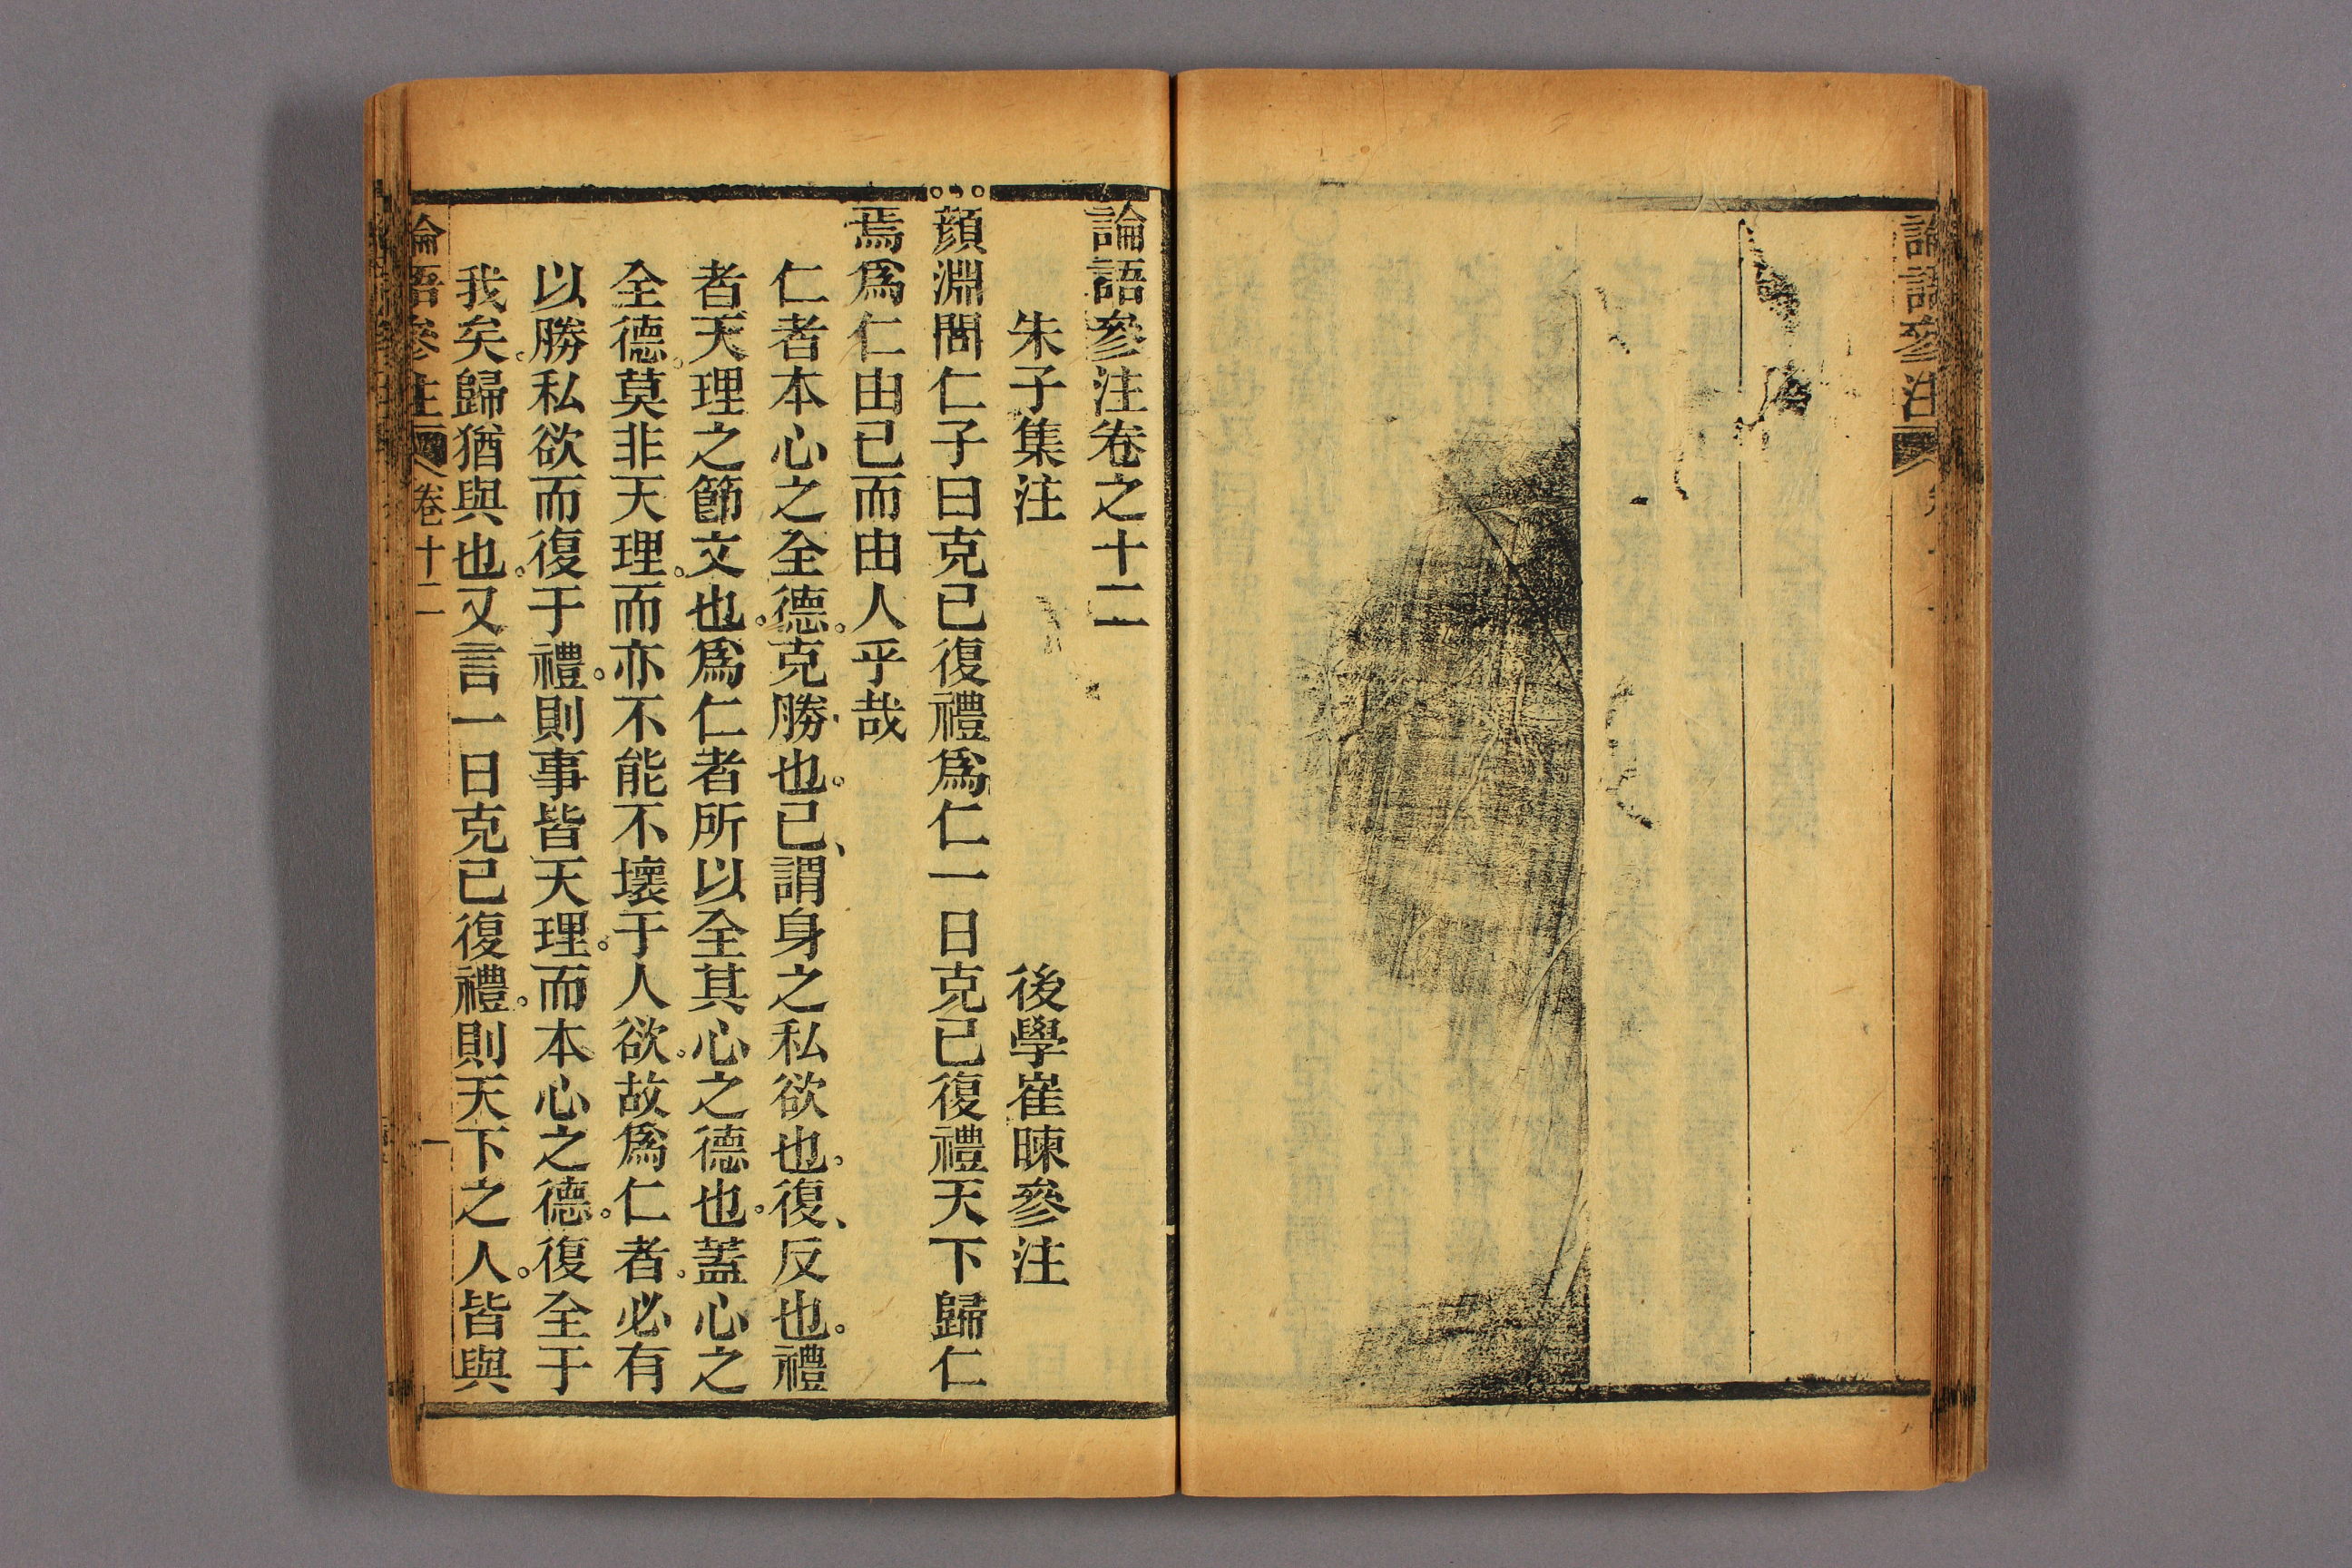 論語參注
論語參注卷之十二
朱子集注　後學崔暕參注
顏淵問仁子曰克已復禮爲仁一日克已復禮天下歸仁
焉爲仁由已而由人乎哉
仁者本心之全德。克勝也。已、謂身之私欲也。復、反也。禮
者天理之節文也。爲仁者所以全其心之德也。蓋心之
全德。莫非天理。而亦不能不壞于人欲。故爲仁者。必有
以勝私欲而復于禮。則事皆天理。而本心之德。復全于
我矣。歸猶與也。又言一日克已復禮。則天下之人。皆與
論語參注　卷十二　一